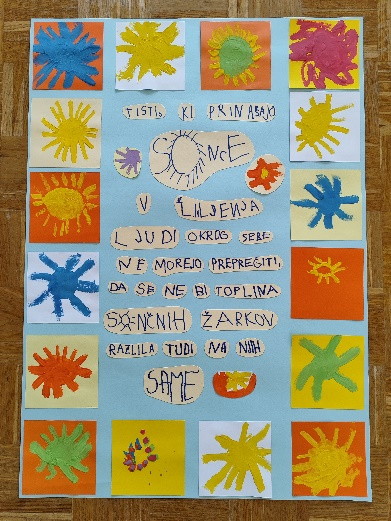 TISTI, KI PRINAŠAJO
SONCE
V ŽIVLJENJA
LJUDI OKROG SEBE
NE MOREJO PREPREČITI,
DA SE NE BI TOPLINA
SONČNIH ŽARKOV
RAZLILA TUDI NA NJIH
SAME